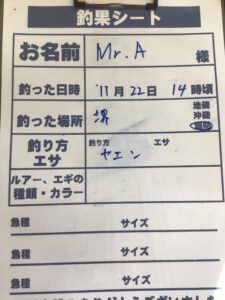 釣果シート
お名前 Mr.A 様
釣った日時 11月22日 14時頃
釣った場所 堺 地磯 沖磯
釣り方 エサ 釣り方 ヤエン エサ
ルアー、エギの種類・カラー
魚種 サイズ
魚種 サイズ
魚種 サイズ